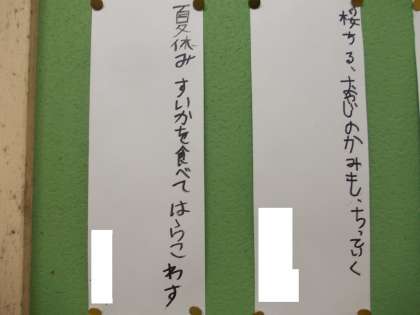 桜ちる、おやじのかみも、ちっていく
夏休み すいかを食べて はらこわす